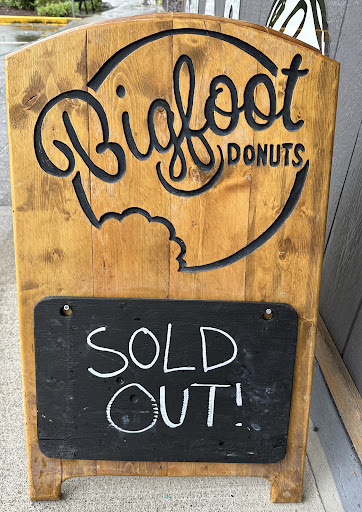 Bigfoot
DONUTS
SOLD
OUT!